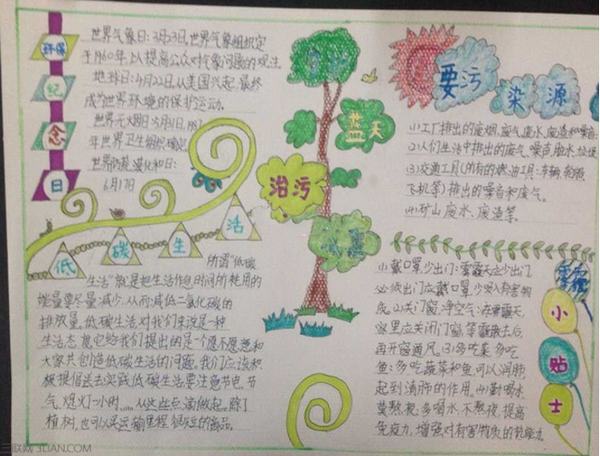 环保
纪
念
日
世界气象日:3月23日,世界气象组织定
于1960年,以提高公众对气象问题的关注。
地球日:4月22日,从美国兴起,最终
成为世界环境的保护运动。
世界无烟日:5月31日,1987
年世界卫生组织确定
世界防荒漠化和日:
6月17日
低
碳
生
活
所谓“低碳
生活”就是把生活作息时间所耗用的
能量要尽量减少,从而减低二氧化碳的
排放量。低碳生活对我们来说是一种
生活态
它给我们提出的是个愿不愿意和
大家共创造低碳生活的问题。我们应该积
极提倡去实践低碳生活要注意节电、节
气、熄灯一小时……从这些点滴做起。除了
植树,
蓝天
治污
要污
染源
(1)工厂排出的废烟、废气、废水、废渣和噪音
(2)人们生活中排出的废气、噪音、脏水、垃圾
(3)交通工具(所有的燃油工具:车辆、轮船
飞机等)排出的噪音和废气。
(4)矿山废水、废渣等。
雾霾
小
贴
士
少出门:雾霾天应少出门
必须出门应戴口罩,少吸入有害物
质。(2)关门窗,净空气:在雾霾天
里应关闭门窗,等雾霾散去后
再开窗通风。(3)多吃菜,多吃
鱼:多吃蔬菜和鱼可以润肺
起到清肺的作用。(4)勤喝水
莫熬夜:多喝水,不熬夜,提高
免疫力,增强对有害物质的抵抗力。
三联网 3LIAN.COM